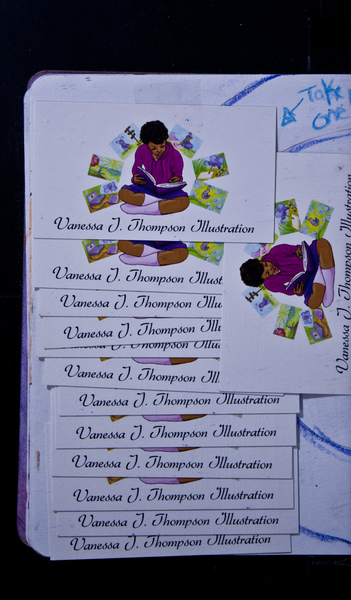 Take
one!
Vanessa J. Thompson Illustration
Vanessa J. Thompson Illust
Vanessa J. Thompson Illu
Vanessa J. Thompson Illu
Vanessa J. Thompson Ill
Vanessa J. Thompson Illustration
Vanessa J. Thompson Illustration
Vanessa J. Thompson Illustration
Vanessa J. Thompson Illustration
Vanessa J. Thompson Illustration
Vanessa J. Thompson Illustration
Vanessa J. Thompson Illustration